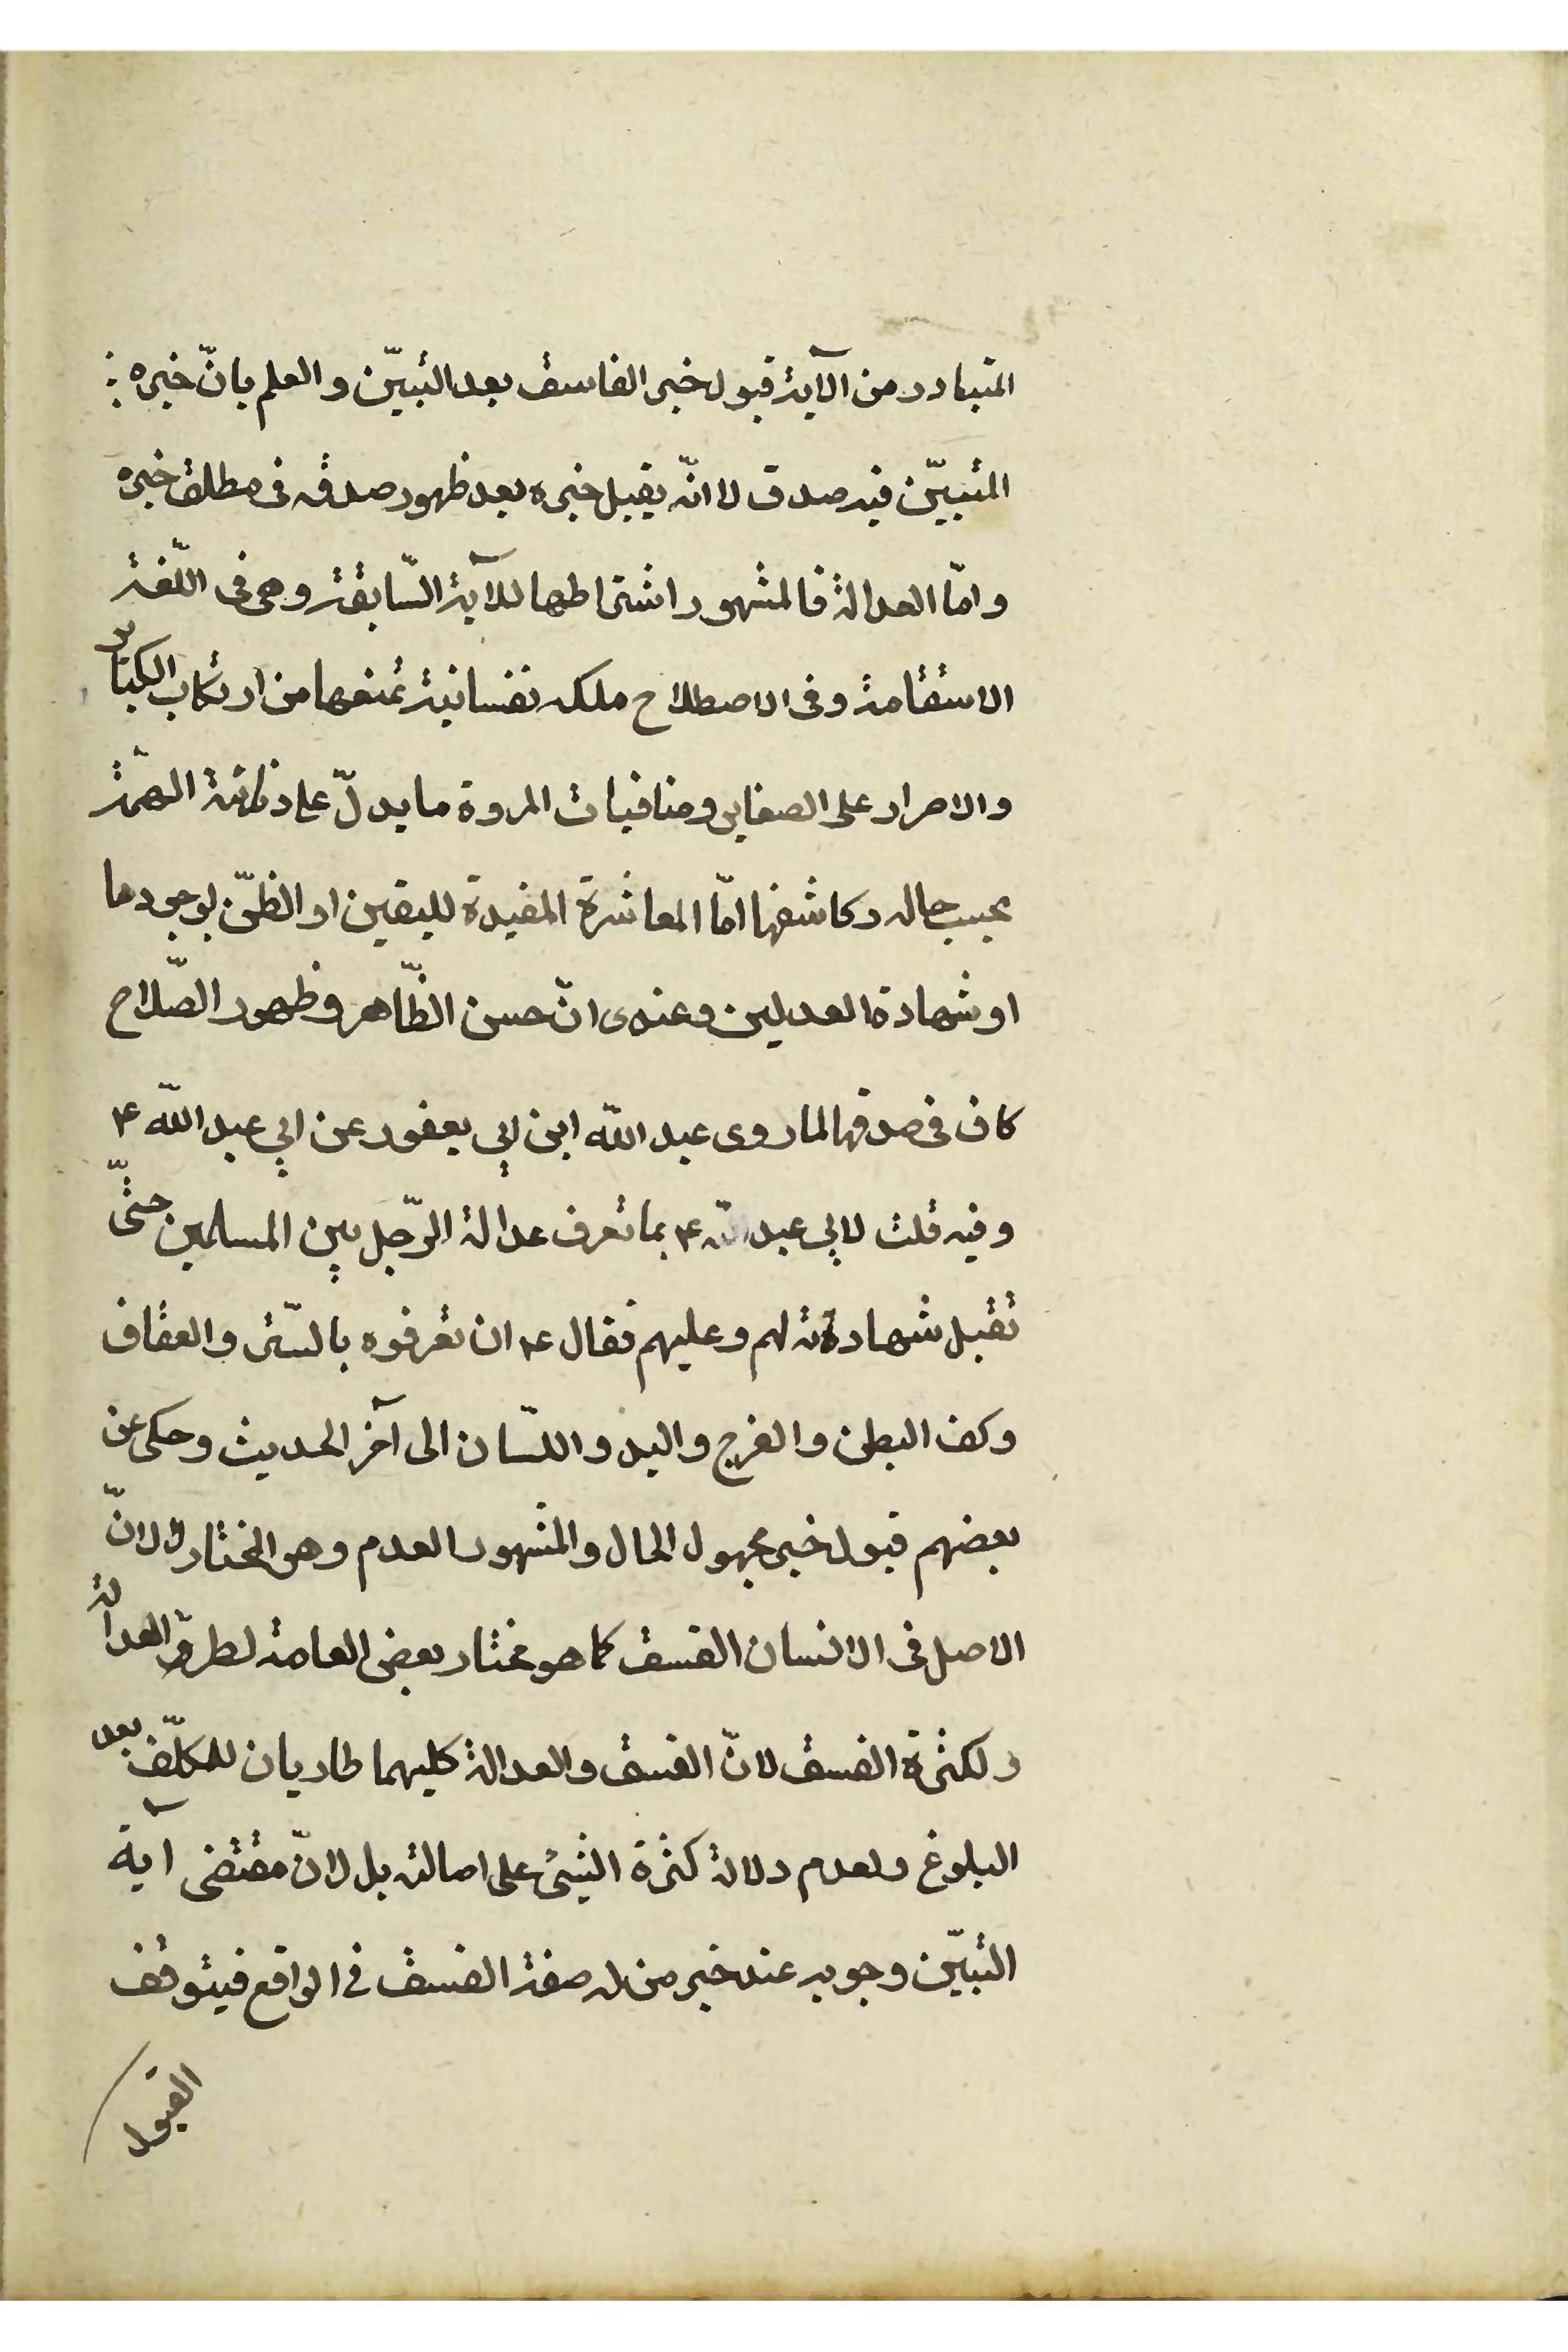 المتبادر من الآية قبول خبر الفاسق بعد التبيّن والعلم بانّ خبره
المتبيّن فيه صدق لا انّه يقبل خبره بعد ظهور صدقه فى مطلق خبره
وامّا العدالة فالمشهور اشتراطها للآية السّابقة وهى فى اللّغة
الاستقامة وفى الاصطلاح ملكه نفسانية تمنعها من ارتكاب الكبائر
والاصرار على الصغاير ومنافيات المروة ما يدلّ على دنائة الهمّة
بحسب حاله وكاشفها امّا المعاشرة المفيدة لليقين او الظنّ بوجودها
او شهادة العدلين وعندى انّ حسن الظّاهر وظهور الصّلاح
كاف فى صدقها لما روى عبد اللّه ابن ابي يعفور عن ابي عبد اللّه ع
وفيه قلت لابي عبد اللّه ع بما تعرف عدالة الرّجل بين المسلمين حتّى
تقبل شهادته لهم وعليهم فقال ع ان تعرفوه بالسّتر والعفاف
وكف البطن والفرج واليد واللّسان الى آخر الحديث وحكى عن
بعضهم قبول خبر مجهول الحال والمشهور العدم وهو المختار لا لانّ
الاصل فى الانسان الفسق كما هو مختار بعض العامة لطروّ العدالة
ولكثرة الفسق لانّ الفسق والعدالة كليهما طاريان للمكلّف بعد
البلوغ ولعدم دلالة كثرة الشيئ على اصالته بل لانّ مقتضى آية
التبيّن وجوبه عند خبر من له صفة الفسق في الواقع فيتوقف
القبول